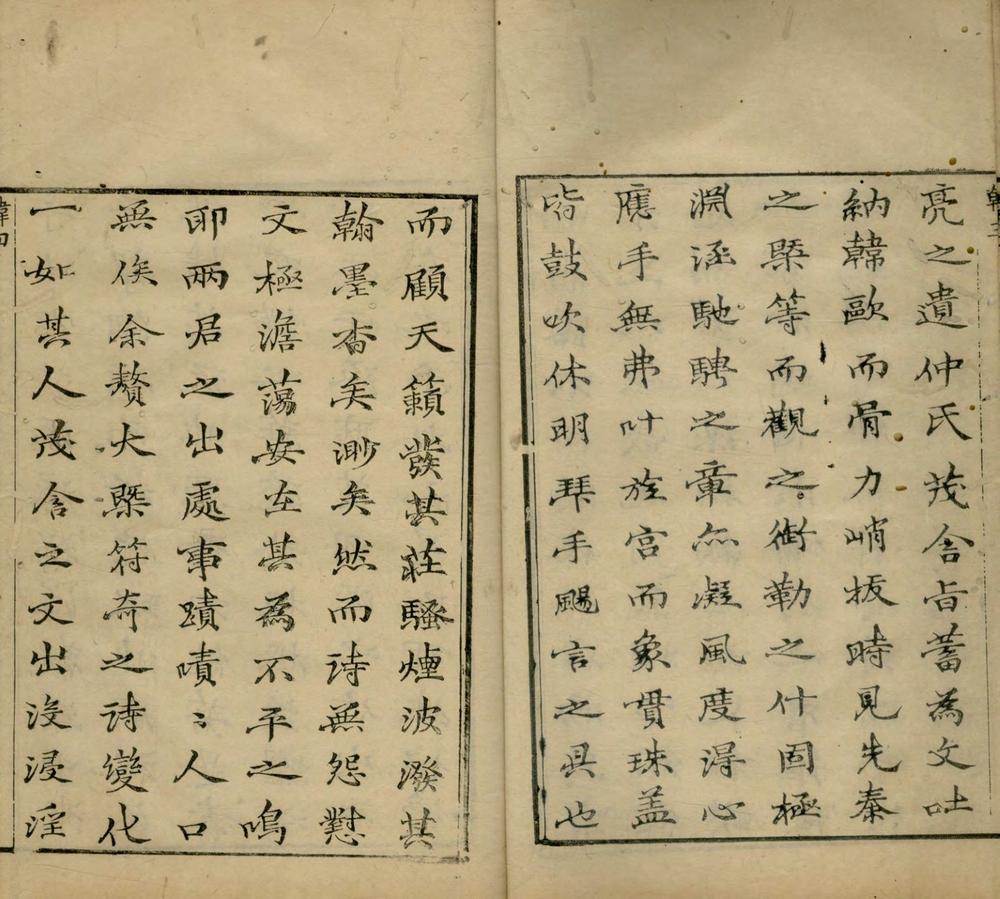 亮之遺仲氏茂含旨蓄為文吐
納韓歐而骨力峭拔時見先秦
之槩等而觀之銜勒之什固極
淵涵馳騁之章亦凝風度得心
應手無弗叶旋宮而象貫珠蓋
皆鼓吹休明拜手颺言之具也
而顧天籟發其莊騷煙波潑其
翰墨杳矣渺矣然而诗無怨懟
文極澹蕩安在其為不平之鳴
耶兩君之出處事蹟嘖〻人口
無俟余贅大槩符奇之诗變化
一如其人茂含之文出沒浸淫